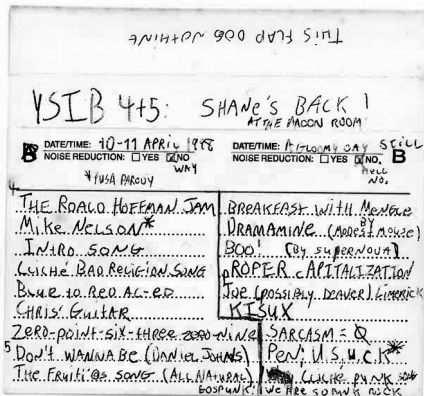 THIS FLAP DOES NOTHING
YSIB 4+5: SHANE'S BACK!
AT THE MACON ROOM
B DATE/TIME: 10-11 APRIL 1998
NOISE REDUCTION: □ YES ☒ NO
WAY
DATE/TIME: A GLOOMY DAY STILL
NOISE REDUCTION: □ YES ☒ NO. B
HELL
NO.
*PUSA PARODY
4
THE ROALD HOFFMAN JAM
MIKE NELSON*
INTRO SONG
CLICHÉ BAD RELIGION SONG
BLUE TO RED AC-ED
CHRIS' GUITAR
ZERO-POINT-SIX-THREE ZERO-NINE
5 DON'T WANNA BE (DANIEL JOHNS)
THE FRUITI@S SONG (ALL NATURAL)
BREAKFAST WITH MENGLE
DRAMAMINE (BY MODEST MOUSE)
BOO! (BY SUPERNOVA)
pROPER cAPITALIZATION
JOE (POSSIBLY DEAVER) LIMERICK
KISUX
SARCASM = Q
PEN, U.S.U.C.K*
CLICHÉ PUNK SONG
GOSPUNK!
WE ARE SO PUNK ROCK